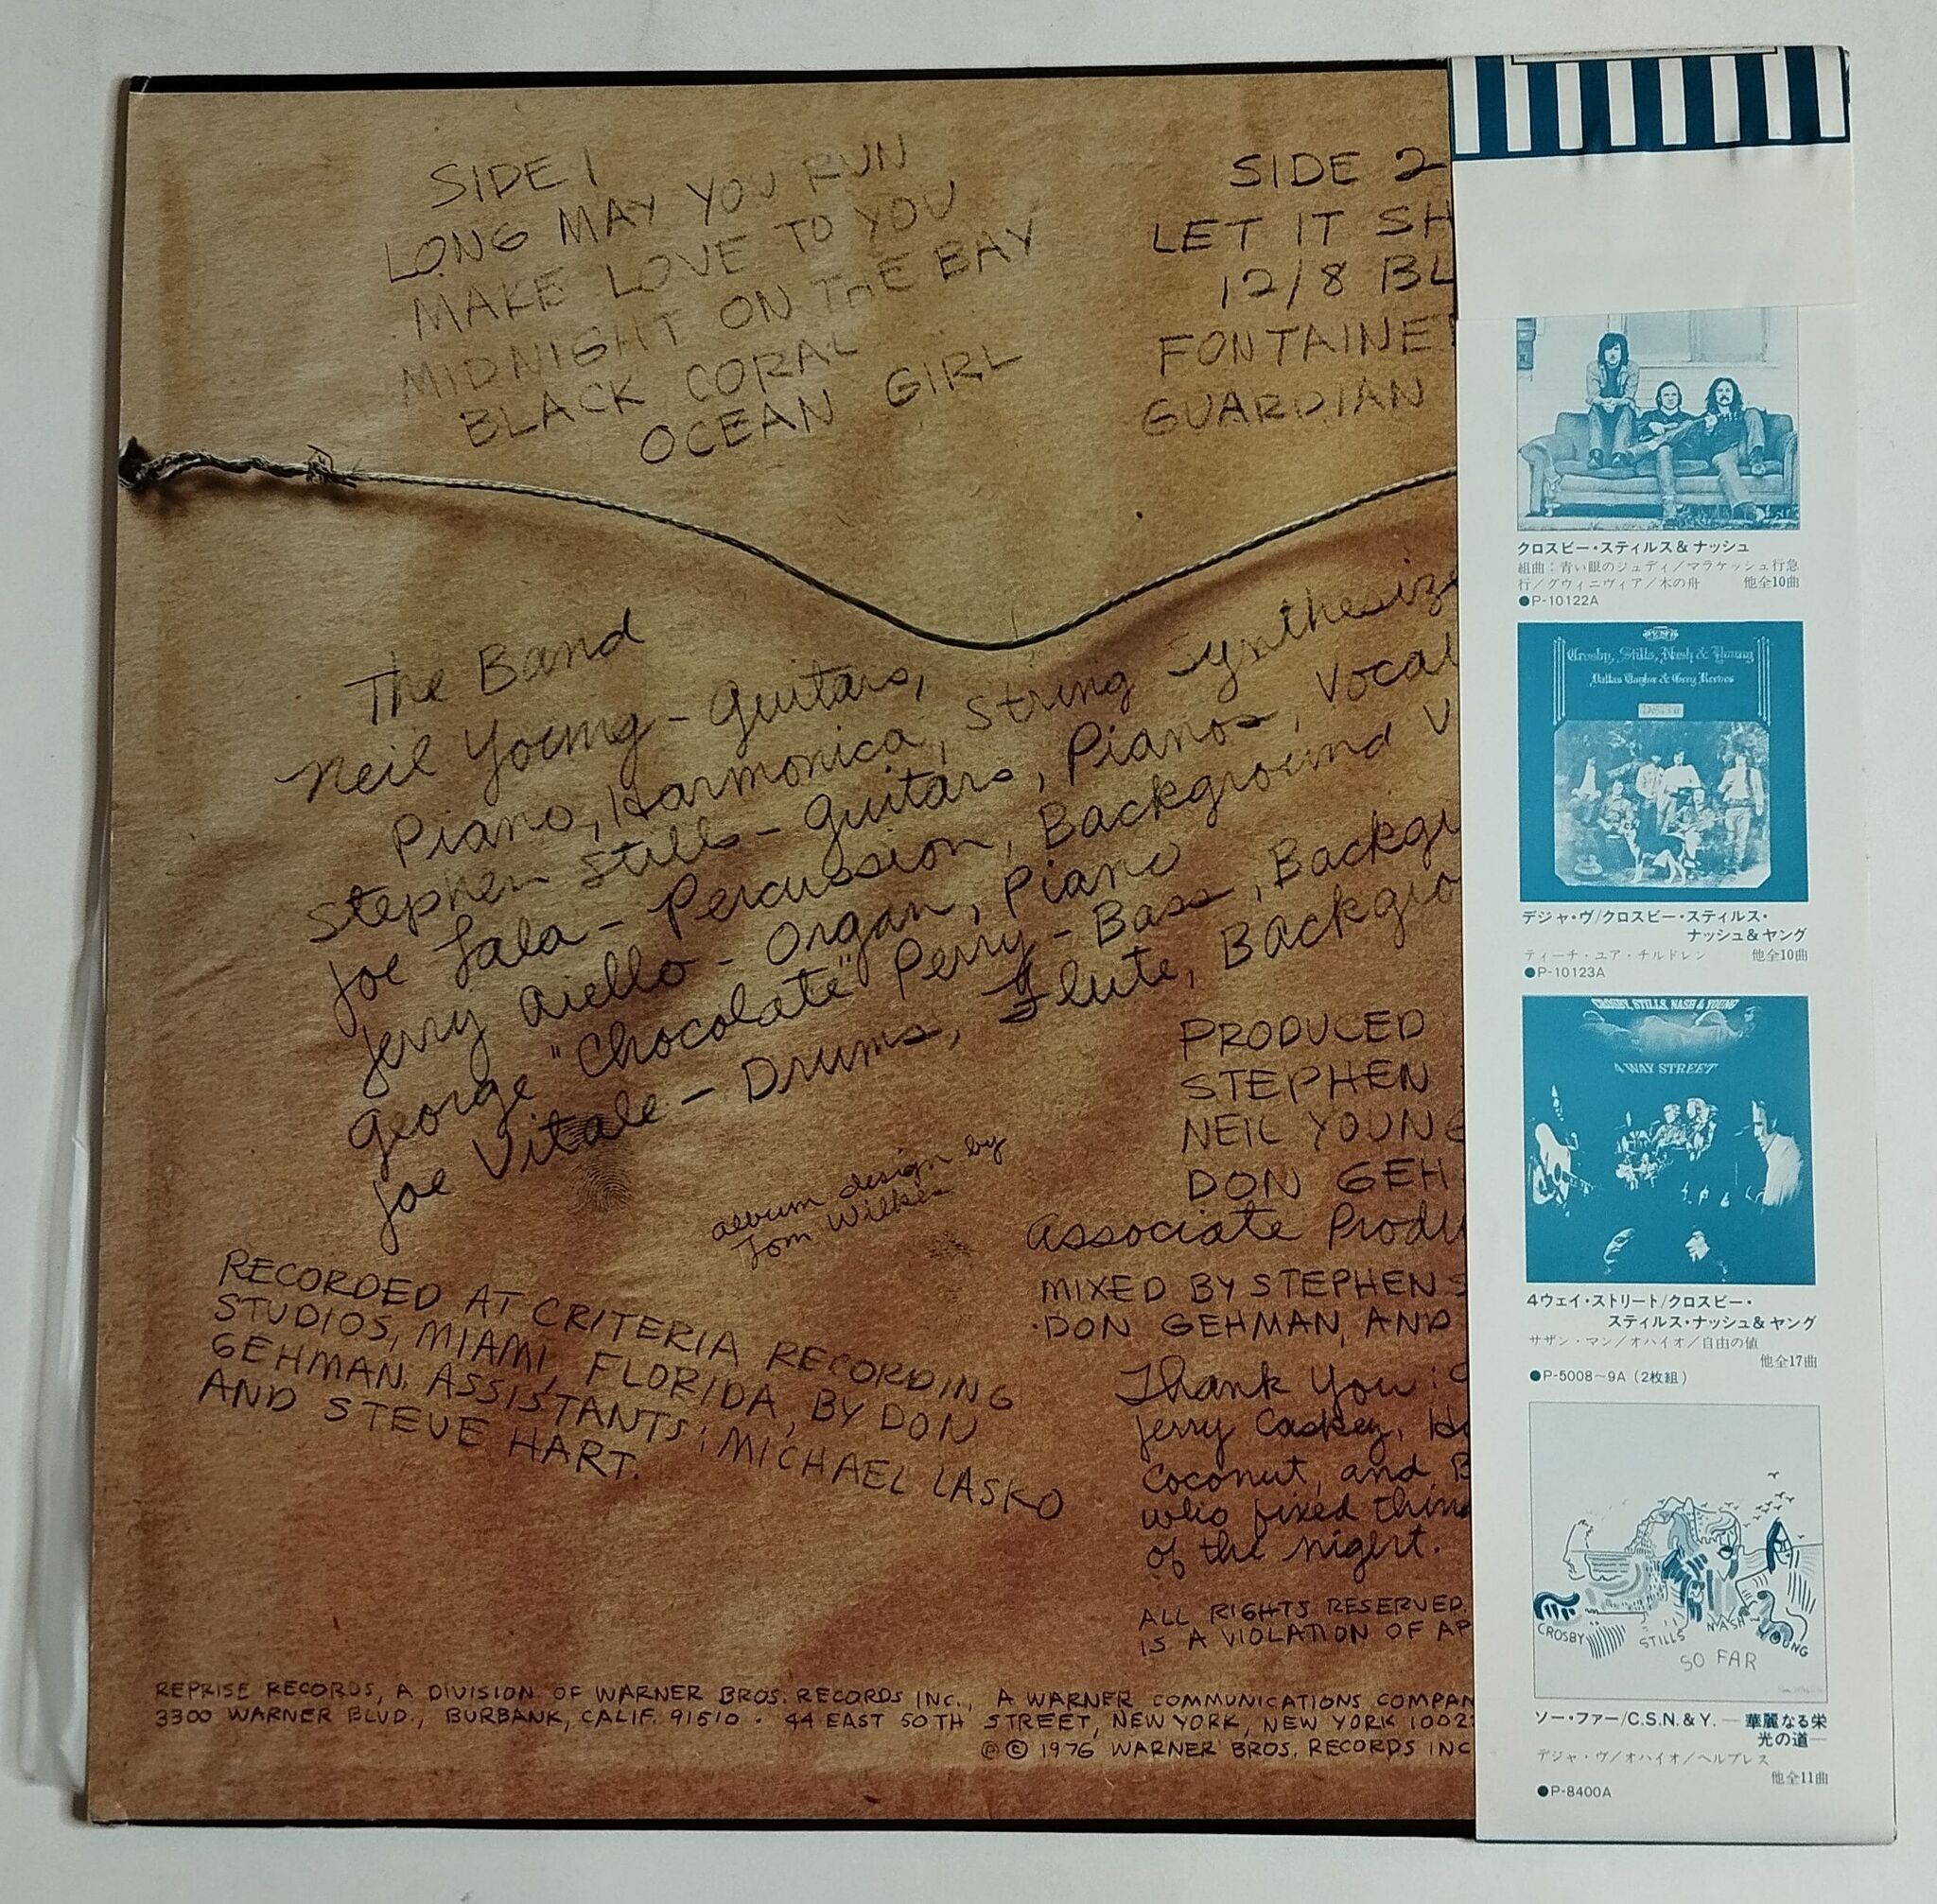 SIDE 1
LONG MAY YOU RUN
MAKE LOVE TO YOU
MIDNIGHT ON THE BAY
BLACK CORAL
OCEAN GIRL
SIDE 2
LET IT SH
12/8 BL
FONTAINE
GUARDIAN
The Band
Neil Young - Guitars,
Piano, Harmonica, String Synthesize
Stephen Stills - Guitars, Pianos, Vocal
Joe Lala - Percussion, Background V
Jerry Aiello - Organ, Piano
George "Chocolate" Perry - Bass, Backgr
Joe Vitale - Drums, Flute, Backgro
album design by
Tom Wilkes
PRODUCED
STEPHEN
NEIL YOUNG
DON GEH
Associate Produ
MIXED BY STEPHEN S
DON GEHMAN, AND
RECORDED AT CRITERIA RECORDING
STUDIOS, MIAMI, FLORIDA, BY DON
GEHMAN. ASSISTANTS: MICHAEL LASKO
AND STEVE HART.
Thank You:
Jerry Caskey, Ho
Coconut, and B
who fixed thing
of the night.
ALL RIGHTS RESERVED.
IS A VIOLATION OF AP
REPRISE RECORDS, A DIVISION OF WARNER BROS. RECORDS INC., A WARNER COMMUNICATIONS COMPAN
3300 WARNER BLVD., BURBANK, CALIF. 91510 · 44 EAST 50TH STREET, NEW YORK, NEW YORK 1002
℗ © 1976 WARNER BROS. RECORDS INC
クロスビー・スティルス&ナッシュ
組曲：青い眼のジュディ／マラケッシュ行急
行／グウィニヴィア／木の舟 他全10曲
●P-10122A
Crosby, Stills, Nash & Young
Dallas Taylor & Greg Reeves
デジャ・ヴ/クロスビー・スティルス・
ナッシュ&ヤング
ティーチ・ユア・チルドレン 他全10曲
●P-10123A
CROSBY, STILLS, NASH & YOUNG
4 WAY STREET
4ウェイ・ストリート/クロスビー・
スティルス・ナッシュ&ヤング
サザン・マン／オハイオ／自由の値
他全17曲
●P-5008〜9A（2枚組）
CROSBY STILLS NASH YOUNG
SO FAR
ソー・ファー/C.S.N.&Y. ―華麗なる栄
光の道―
デジャ・ヴ／オハイオ／ヘルプレス
他全11曲
●P-8400A